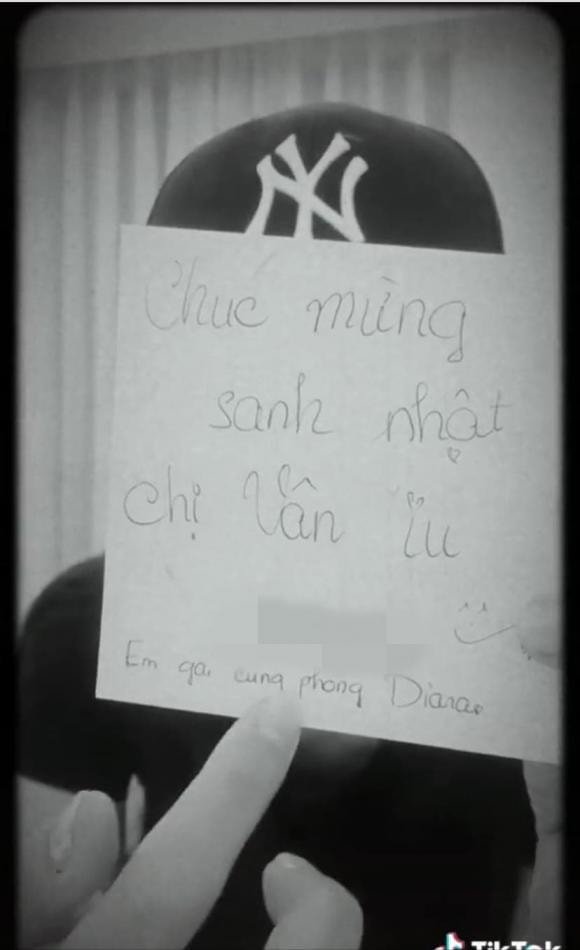 NY
Chúc mừng
sanh nhật
chị Vân iu
Em gái cung phong Diana
TikTok